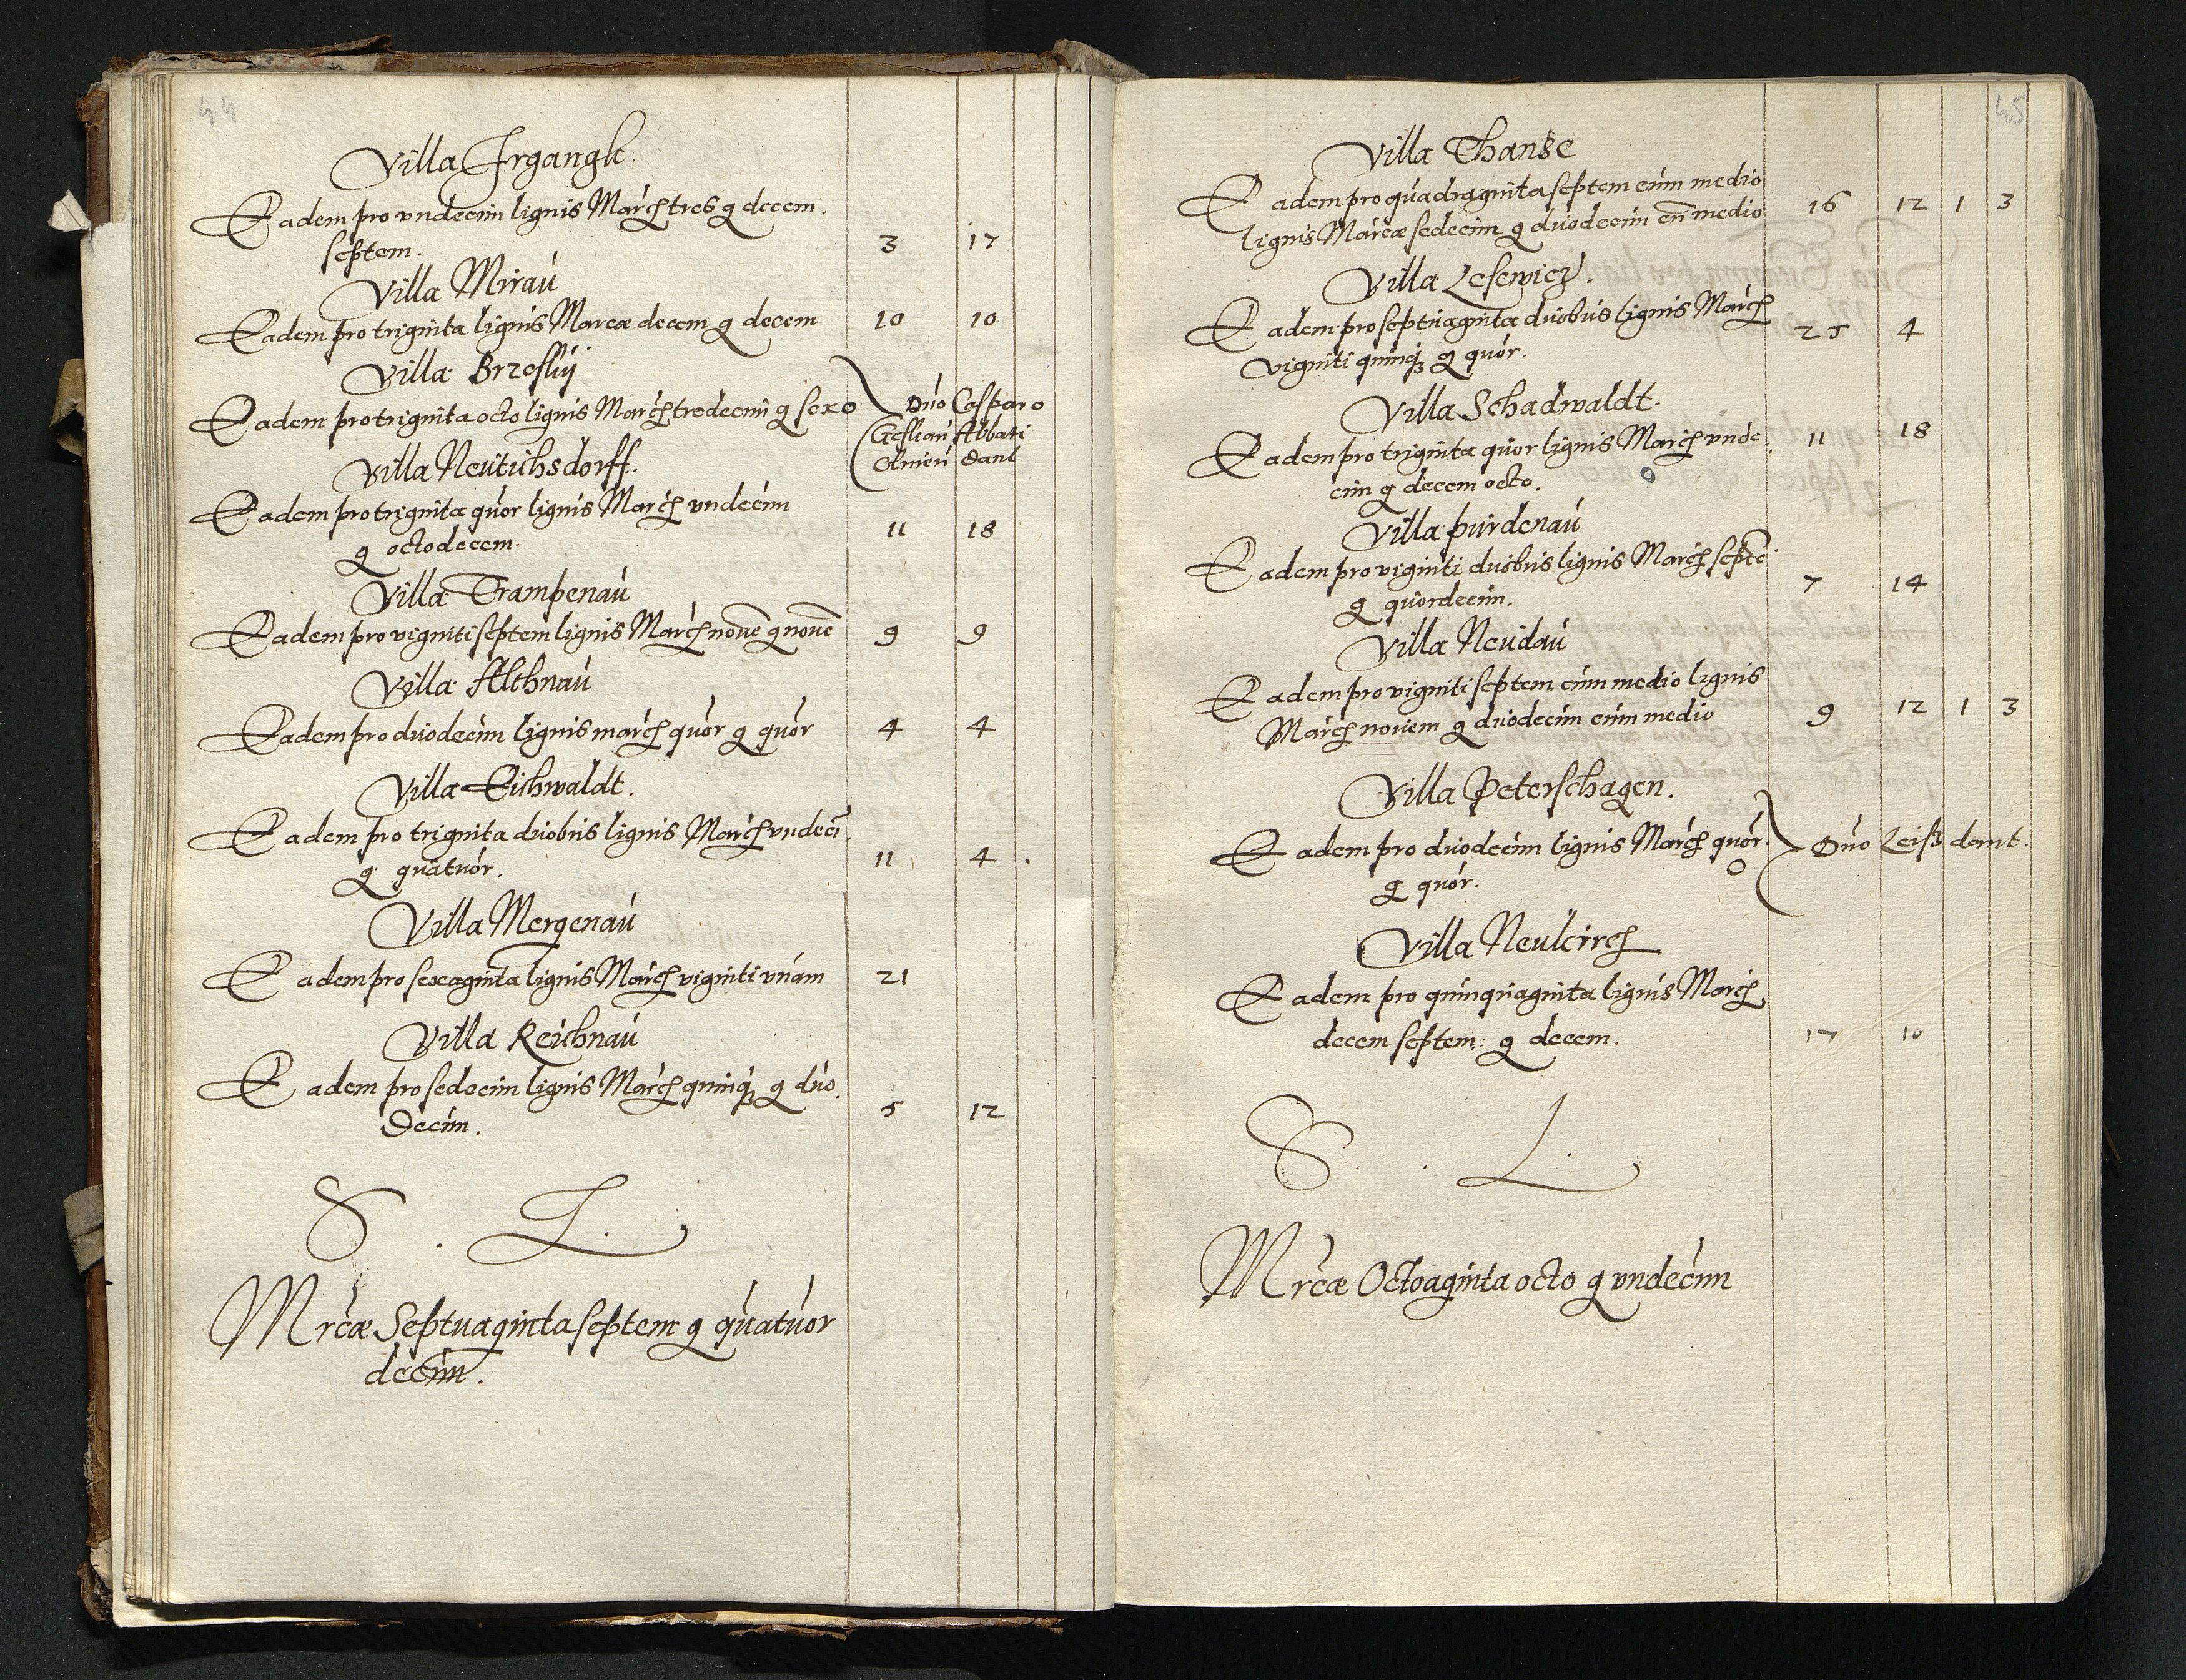 44
Villa Irgangk.
Eadem pro vndecim lignis March tres g decem.
septem.
3 17
Villa Mirau
Eadem pro triginta lignis Marcæ decem g decem 10 10
Villa Brzeskij
Eadem pro triginta octo lignis March tredecim g sex
Dno Casparo
Geskau Abbati
Oliuen dant
Villa Neutichsdorff.
Eadem pro triginta quor lignis March vndecim
g octodecem.
11 18
Villa Trampenau
Eadem pro viginti septem lignis March nouē g nouē 9 9
Villa Althnau
Eadem pro duodecim lignis march quor g quor 4 4
Villa Eichwaldt.
Eadem pro triginta duobus lignis March vndecī
g quatuor.
11 4.
Villa Mergenau
Eadem pro sexaginta lignis March viginti vnam 21
Villa Reichnau
Eadem pro sedecim lignis March quinq3 g duo
decim.
5 12
S. L.
Mrcæ Septuaginta septem g quatuor
decim.
45
Villa Thanse
Eadem pro quadraginta septem cum medio
lignis Marcæ sedecim g duodecim cū medio
16 12 1 3
Villa Lesewicz.
Eadem pro septuaginta duobus lignis March
viginti quinq3 g quor.
25 4
Villa Schadwaldt.
Eadem pro triginta quor lignis March vnde
cim g decem octo.
11 18
Villa purdenau
Eadem pro viginti duobus lignis March septē
g quordecim.
7 14
Villa Neudau
Eadem pro viginti septem cum medio lignis
March nouem g duodecim cum medio
9 12 1 3
Villa Peterschagen.
Eadem pro duodecim lignis March quor
g quor.
Dno Leiß dant.
Villa Neukirch
Eadem pro quinquaginta lignis March
decem septem g decem.
17 10
S. L.
Mrcæ Octoaginta octo g vndecim